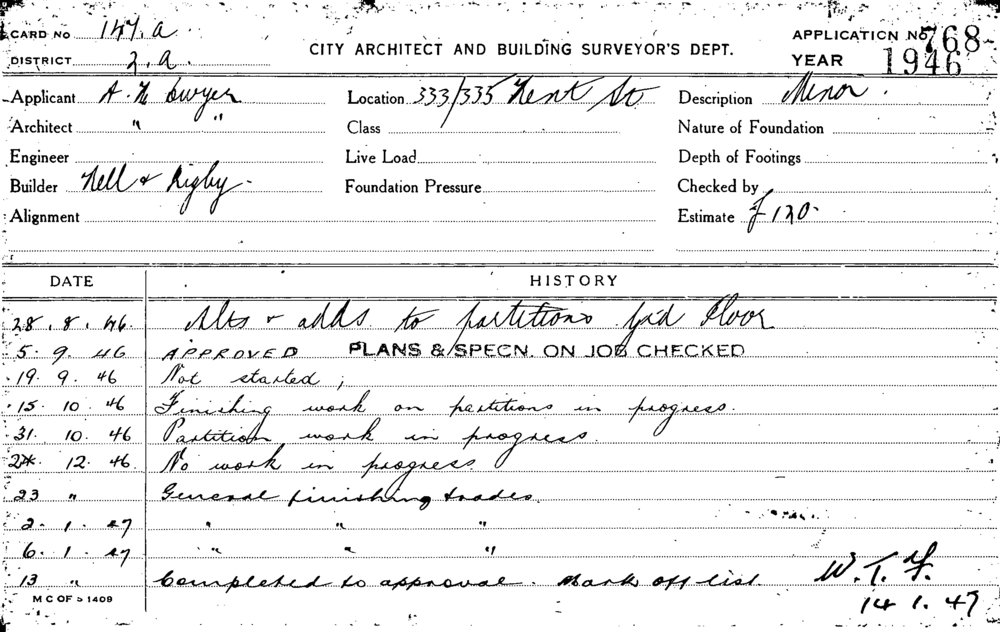 CARD NO 147.a
DISTRICT 2.a.
CITY ARCHITECT AND BUILDING SURVEYOR'S DEPT.
APPLICATION NO 768
YEAR 1946
Applicant A. H Dwyer Location 333/335 Kent St Description Minor.
Architect " " Class Nature of Foundation
Engineer Live Load Depth of Footings
Builder Kell & Rigby. Foundation Pressure Checked by
Alignment Estimate £120.
DATE HISTORY
28.8.46 Alts & adds to partitions Grd Floor
5.9.46 APPROVED PLANS & SPECN. ON JOB CHECKED
19.9.46 Not started;
15.10.46 Finishing work on partitions in progress.
31.10.46 Partition work in progress.
12.46 No work in progress.
23 " General finishing trades.
2.1.47 " " "
6.1.47 " " "
13 " Completed to approval. Mark off list. W.T.
14.1.47
M C OF S 1409